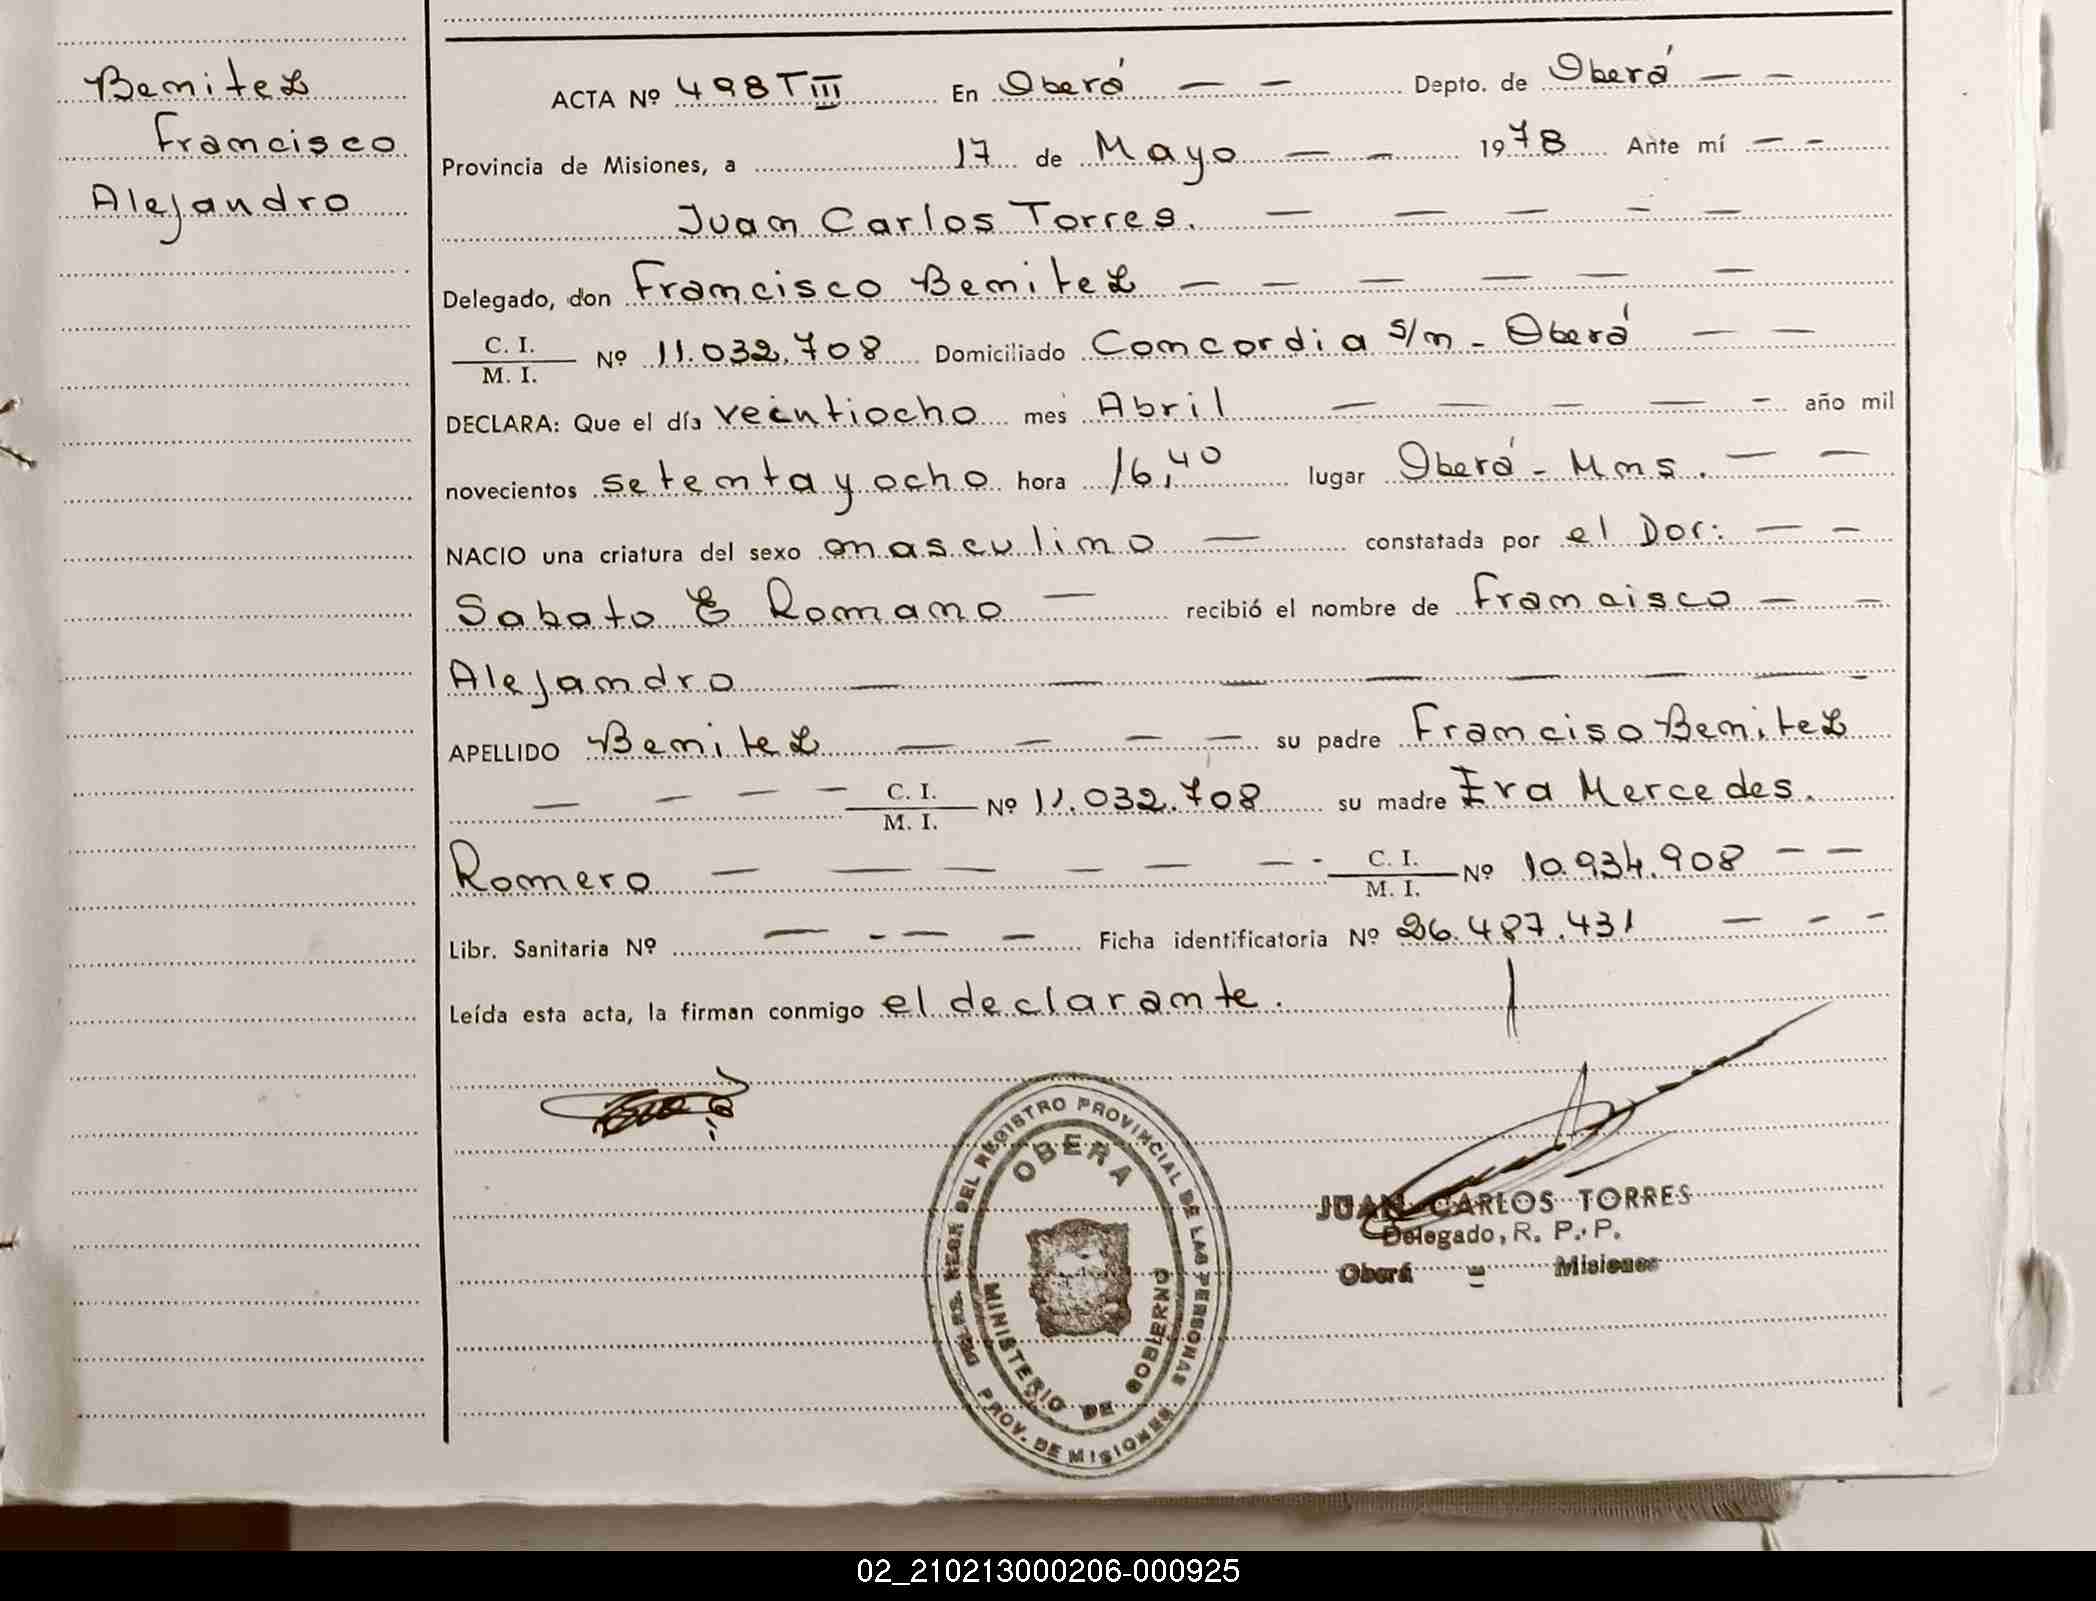 Benitez
Francisco
Alejandro
ACTA Nº 498 T III En Oberá — — Depto. de Oberá — —
Provincia de Misiones, a 17 de Mayo — — 1978 Ante mí — —
Juan Carlos Torres. — — — — —
Delegado, don Francisco Benitez — — — — — —
C. I. / M. I. Nº 11.032.708 Domiciliado Concordia s/n - Oberá — —
DECLARA: Que el día veintiocho mes Abril — — — — — año mil
novecientos setenta y ocho hora 16,40 lugar Oberá - Mns. — —
NACIO una criatura del sexo masculino — constatada por el Dor: — —
Sabato E Romano — recibió el nombre de Francisco — —
Alejandro — — — — — — — —
APELLIDO Benitez — — — — su padre Franciso Benitez
— — — — C. I. / M. I. Nº 11.032.708 su madre Eva Mercedes.
Romero — — — — — — - C. I. / M. I. Nº 10.934.908 — —
Libr. Sanitaria Nº — - — — Ficha identificatoria Nº 26.487.431 — - -
Leída esta acta, la firman conmigo el declarante.
DEL REGISTRO PROVINCIAL DE LAS PERSONAS
OBERA
MINISTERIO DE GOBIERNO
PROV. DE MISIONES
JUAN CARLOS TORRES
Delegado, R. P. P.
Oberá - Misiones
02_210213000206-000925